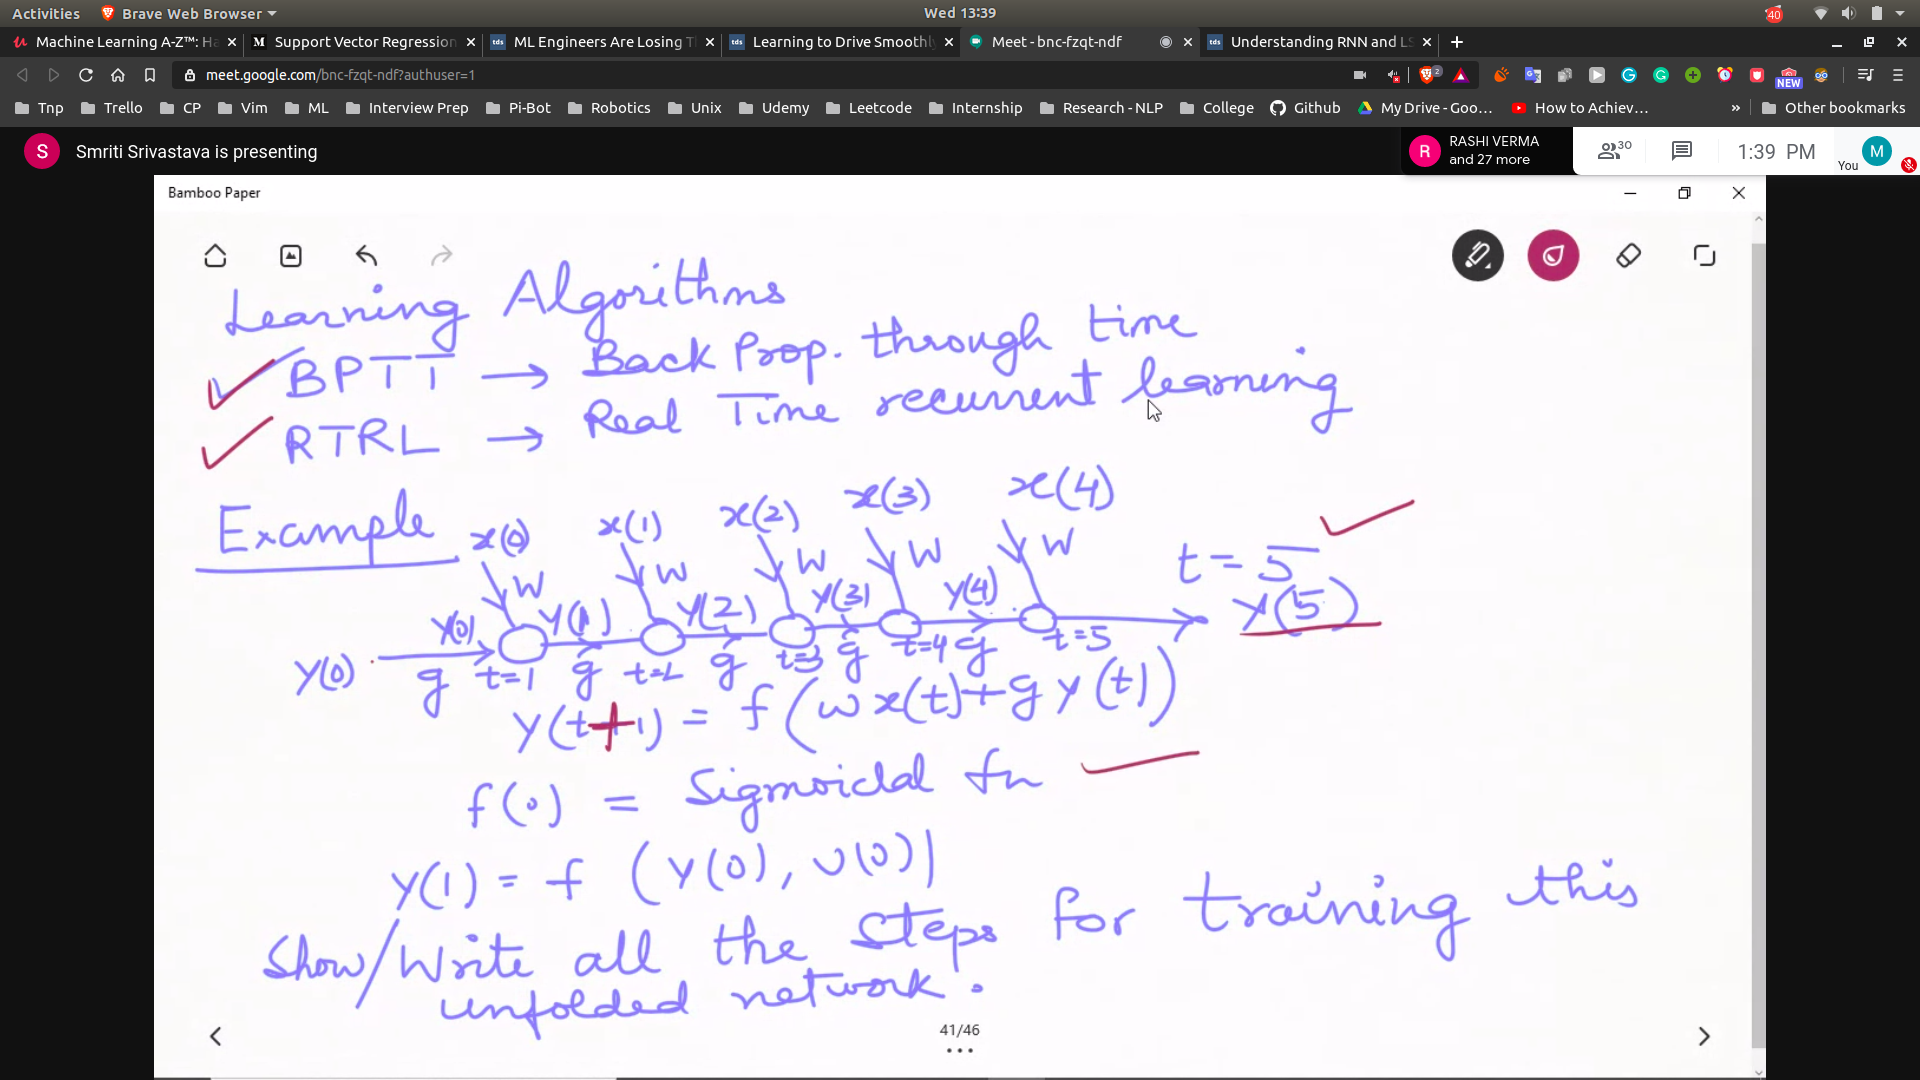 Activities Brave Web Browser Wed 13:39 40
Machine Learning A-Z™: Ha Support Vector Regression ML Engineers Are Losing T Learning to Drive Smoothly Meet - bnc-fzqt-ndf Understanding RNN and LS
meet.google.com/bnc-fzqt-ndf?authuser=1 2 NEW
Tnp Trello CP Vim ML Interview Prep Pi-Bot Robotics Unix Udemy Leetcode Internship Research - NLP College Github My Drive - Goo... How to Achiev... » Other bookmarks
S Smriti Srivastava is presenting R RASHI VERMA and 27 more 30 1:39 PM You M
Bamboo Paper
Learning Algorithms
BPTT → Back Prop. through time
RTRL → Real Time recurrent learning
Example x(0) x(1) x(2) x(3) x(4)
W W W W W t = 5
Y(0) Y(1) Y(2) Y(3) Y(4) Y(5)
Y(0) g t=1 g t=2 g t=3 g t=4 g t=5
Y(t+1) = f(w x(t)+g y(t))
f(0) = Sigmoidal fn
Y(1) = f (Y(0), U(0))
Show/Write all the steps for training this
unfolded network.
41/46